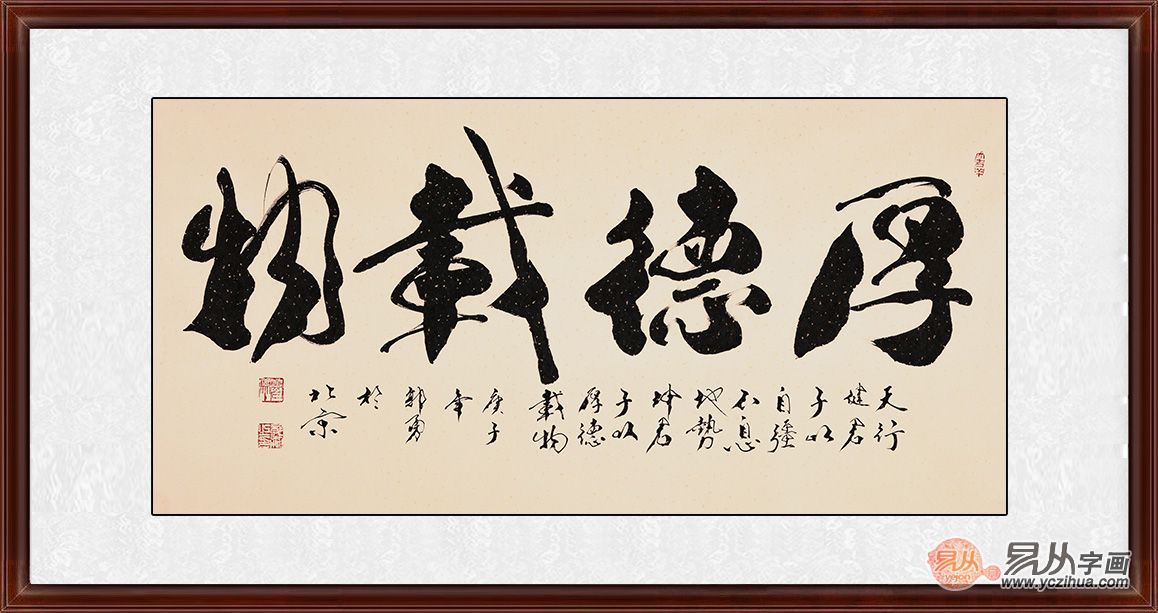 厚德載物
天行
健君
子以
自强
不息
地勢
坤君
子以
厚德
載物
庚子
年
郭勇
於
北京
易从
yejon
易从字画
www.yczihua.com